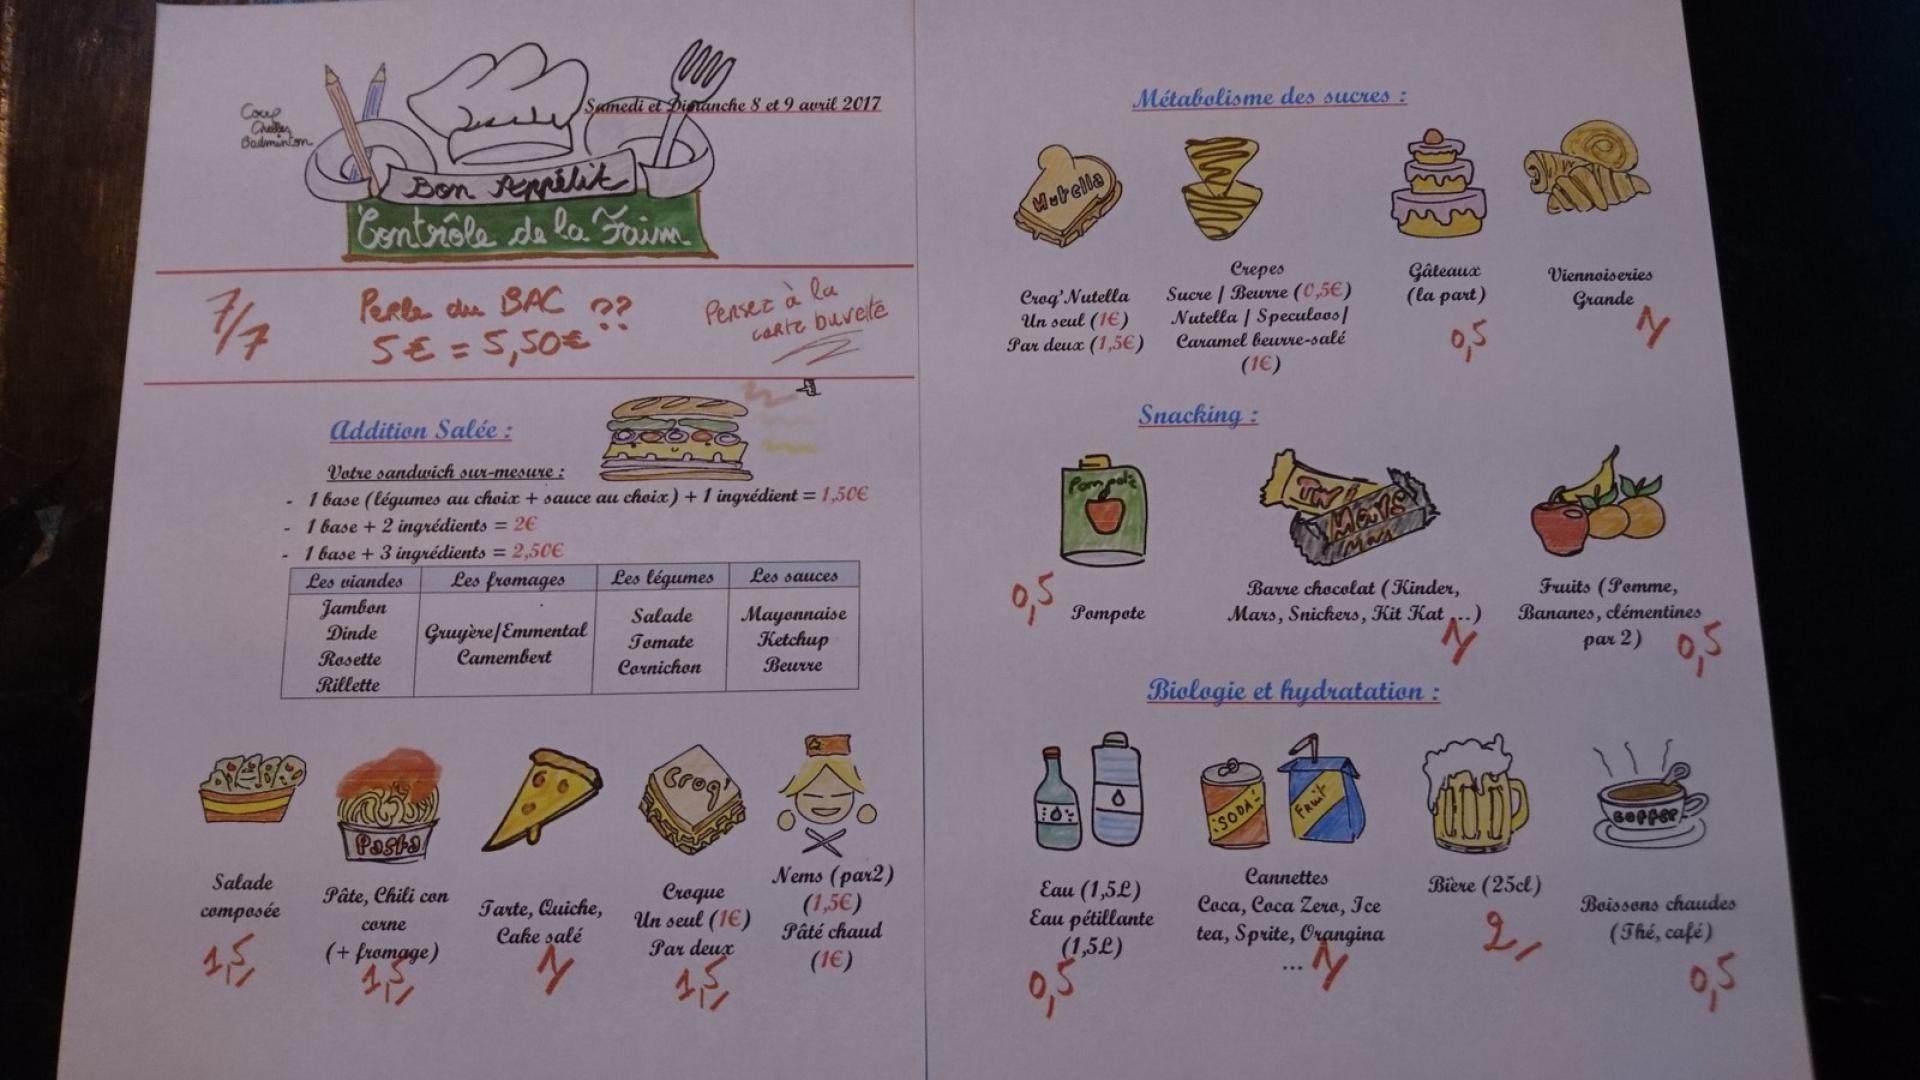 Coup
Chelles
Badminton
Samedi et Dimanche 8 et 9 avril 2017
Bon Appétit
Contrôle de la Faim
7/7
Perle du BAC ??
5€ = 5,50€
Pensez à la
carte buvette
Addition Salée :
Votre sandwich sur-mesure :
- 1 base (légumes au choix + sauce au choix) + 1 ingrédient = 1,50€
- 1 base + 2 ingrédients = 2€
- 1 base + 3 ingrédients = 2,50€
Les viandes Les fromages Les légumes Les sauces
Jambon
Dinde
Rosette
Rillette
Gruyère/Emmental
Camembert
Salade
Tomate
Cornichon
Mayonnaise
Ketchup
Beurre
Pasta
Croq'
Salade
composée
1,5
Pâte, Chili con
corne
(+ fromage)
1,5
Tarte, Quiche,
Cake salé
1
Croque
Un seul (1€)
Par deux
1,5
Nems (par2)
(1,5€)
Pâté chaud
(1€)
Métabolisme des sucres :
Nutella
Croq'Nutella
Un seul (1€)
Par deux (1,5€)
Crepes
Sucre / Beurre (0,5€)
Nutella / Speculoos/
Caramel beurre-salé
(1€)
Gâteaux
(la part)
0,5
Viennoiseries
Grande
1
Snacking :
Pompote
Twi
Mars
Mars
0,5
Pompote
Barre chocolat (Kinder,
Mars, Snickers, Kit Kat ...)
1
Fruits (Pomme,
Bananes, clémentines
par 2)
0,5
Biologie et hydratation :
SODA
Fruit
COFFEE
Eau (1,5L)
Eau pétillante
(1,5L)
0,5
Cannettes
Coca, Coca Zero, Ice
tea, Sprite, Orangina
...
1
Bière (25cl)
2
Boissons chaudes
(Thé, café)
0,5